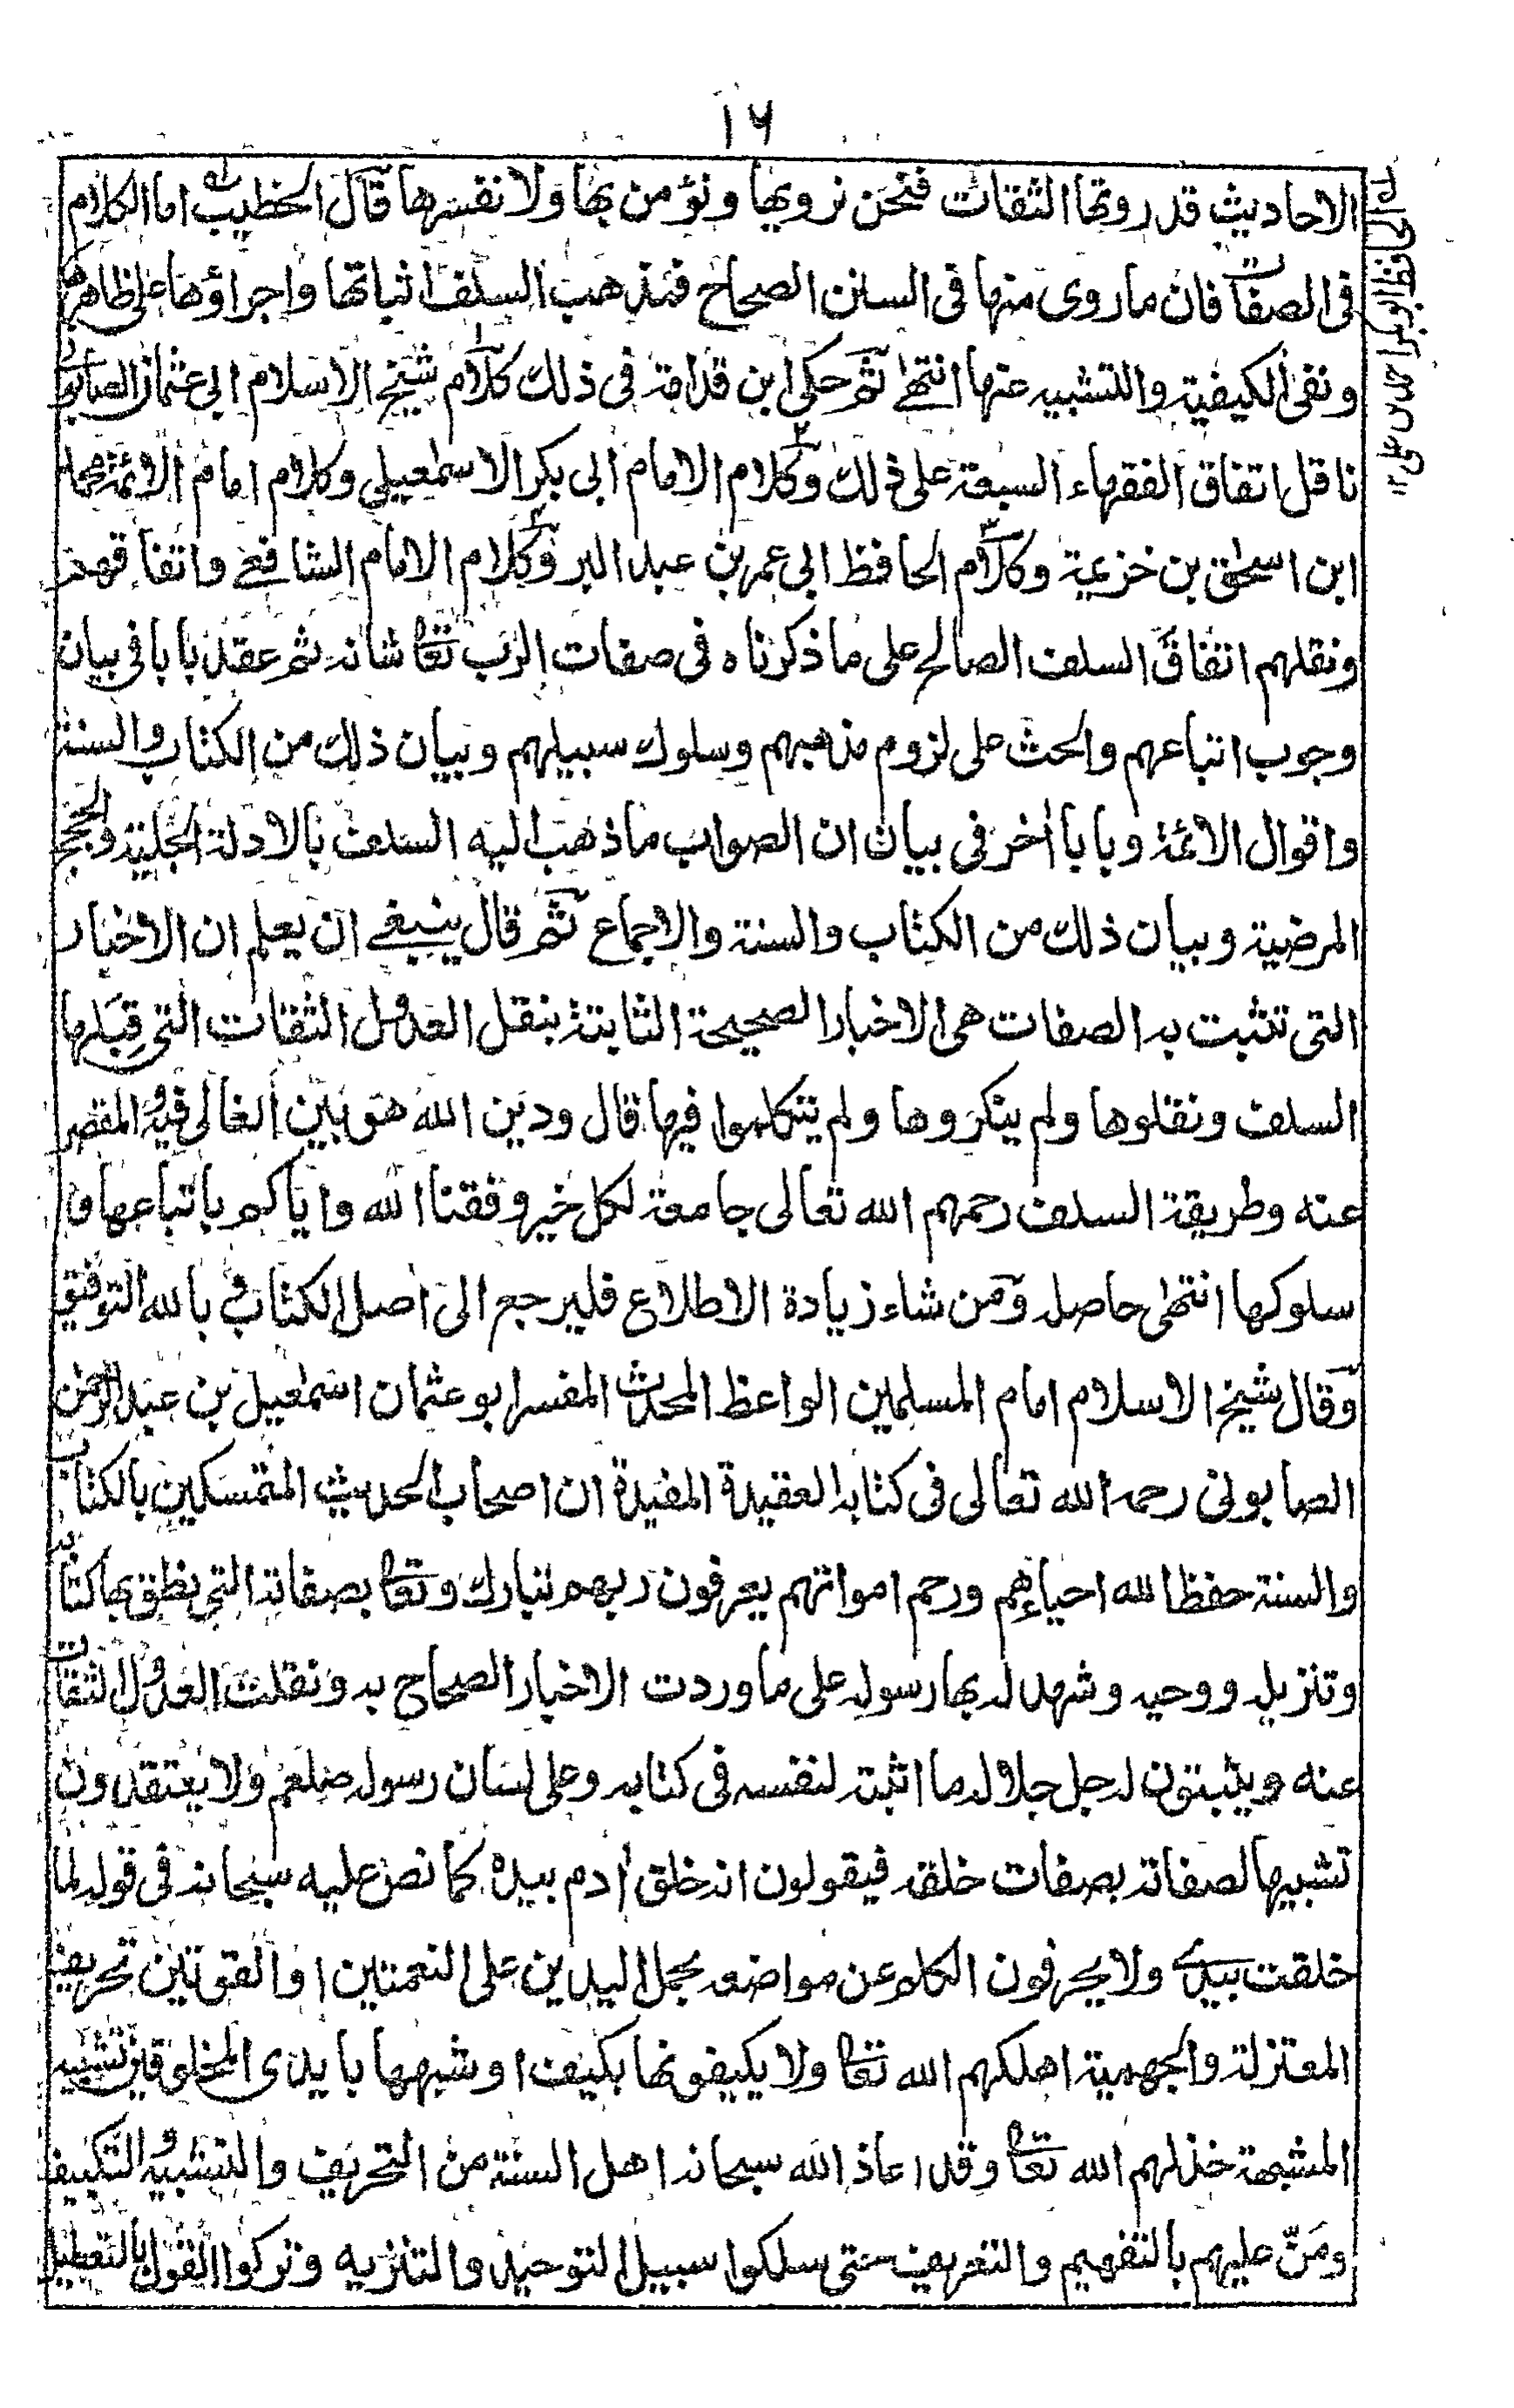 ١٦
الاحاديث قد روتها الثقات فنحن نرويها ونؤمن بها ولا نفسرها قال الخطيب له اما الكلام
فى الصفات فان ما روى منها فى السنن الصحاح فمذهب السلف اثباتها واجراؤها على ظاهرها
ونفى الكيفية والتشبيه عنها انتهى ثم حكى ابن قدامة فى ذلك كلام شيخ الاسلام ابى عثمان الصابونى
ناقل اتفاق الفقهاء السبعة على ذلك وكلام الامام ابى بكر الاسمعيلي وكلام امام الائمة محمد
ابن اسحق بن خزيمة وكلام الحافظ ابى عمر بن عبد البر وكلام الامام الشافعے واتفاقهم
ونقلهم اتفاق السلف الصالح على ما ذكرناه فى صفات الرب تعا شانه ثم عقد بابا فى بيان
وجوب اتباعهم والحث على لزوم مذهبهم وسلوك سبيلهم وبيان ذلك من الكتاب والسنة
واقوال الائمة وبابا أخر فى بيان ان الصواب ما ذهب اليه السلف بالادلة الجلية والحجج
المرضية وبيان ذلك من الكتاب والسنة والاجماع ثم قال ينبغے ان يعلم ان الاخبار
التى تثبت به الصفات هى الاخبار الصحيحة الثابتة بنقل العدول الثقات التى قِبَلها
السلف ونقلوها ولم ينكروها ولم يتكلموا فيها قال ودين الله هو بين الغالى فيه والمقصر
عنه وطريقة السلف رحمهم الله تعالى جامعة لكل خير وفقنا الله واياكم باتباعها و
سلوكها انتهى حاصله ومن شاء زيادة الاطلاع فليرجع الى اصل الكتاب و بالله التوفيق
وقال شيخ الاسلام امام المسلمين الواعظ المحدث المفسر ابو عثمان اسمعيل بن عبد الرحمن
الصابونى رحمه الله تعالى فى كتابه العقيدة المفيدة ان اصحاب الحديث المتمسكين بالكتاب
والسنة حفظ الله احياءهم ورحم امواتهم يعرفون ربهم تبارك وتعا بصفاته التى نطق بها كتابه
وتنزيله ووحيه وشهد له بها رسوله على ما وردت الاخبار الصحاح به ونقلت العدول الثقات
عنه ويثبتون له جل جلاله ما اثبته لنفسه فى كتابه وعلى لسان رسوله صلعم ولا يعتقدون
تشبيها لصفاته بصفات خلقه فيقولون انه خلق أدم بيده كما نص عليه سبحانه فى قوله لما
خلقت بيدى ولا يحرفون الكلم عن مواضعه بحمل اليدين على النعمتين او القوتين تحريف
المعتزلة والجهمية اهلكهم الله تعا ولا يكيفونها بكيف او شبهها بايدى المخلوقين تشبيه
المشبهة خذلهم الله تعا وقد اعاذ الله سبحانه اهل السنة من التحريف والتشبيه والتكييف
ومَنّ عليهم بالتفهيم والتعريف حتى سلكوا سبيل التوحيد والتنزيه وتركوا القول بالتعطيل
له الحافظ ابوبكر احمد بن على ١٢